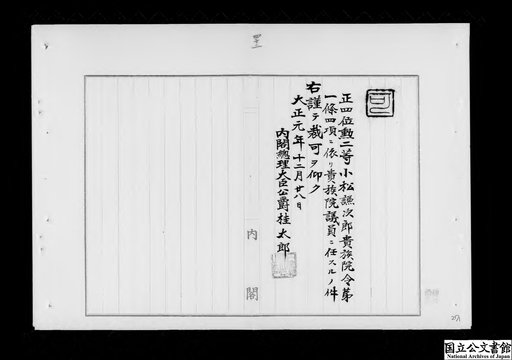 可
正四位勲二等小松謙次郎貴族院令第
一條四項ニ依リ貴族院議員ニ任スルノ件
右謹テ裁可ヲ仰ク
大正元年十二月廿八日
内閣總理大臣公爵桂太郎
内閣
国立公文書館
National Archives of Japan